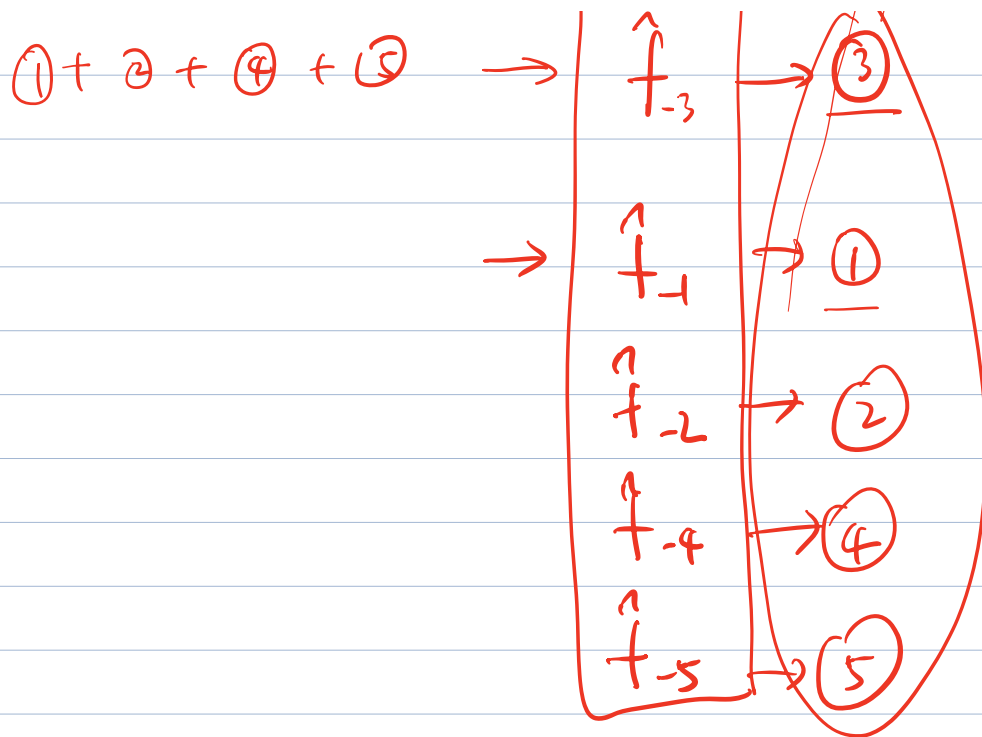 ① + ② + ④ + ⑤ → f̂₋₃ → ③
→ f̂₋₁ → ①
f̂₋₂ → ②
f̂₋₄ → ④
f̂₋₅ → ⑤